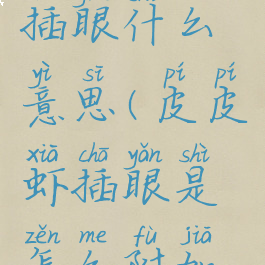 插眼什么
yì sī pí pí
意思(皮皮
xiā chā yǎn shì
虾插眼是
zěn me fù jiā
怎么附加